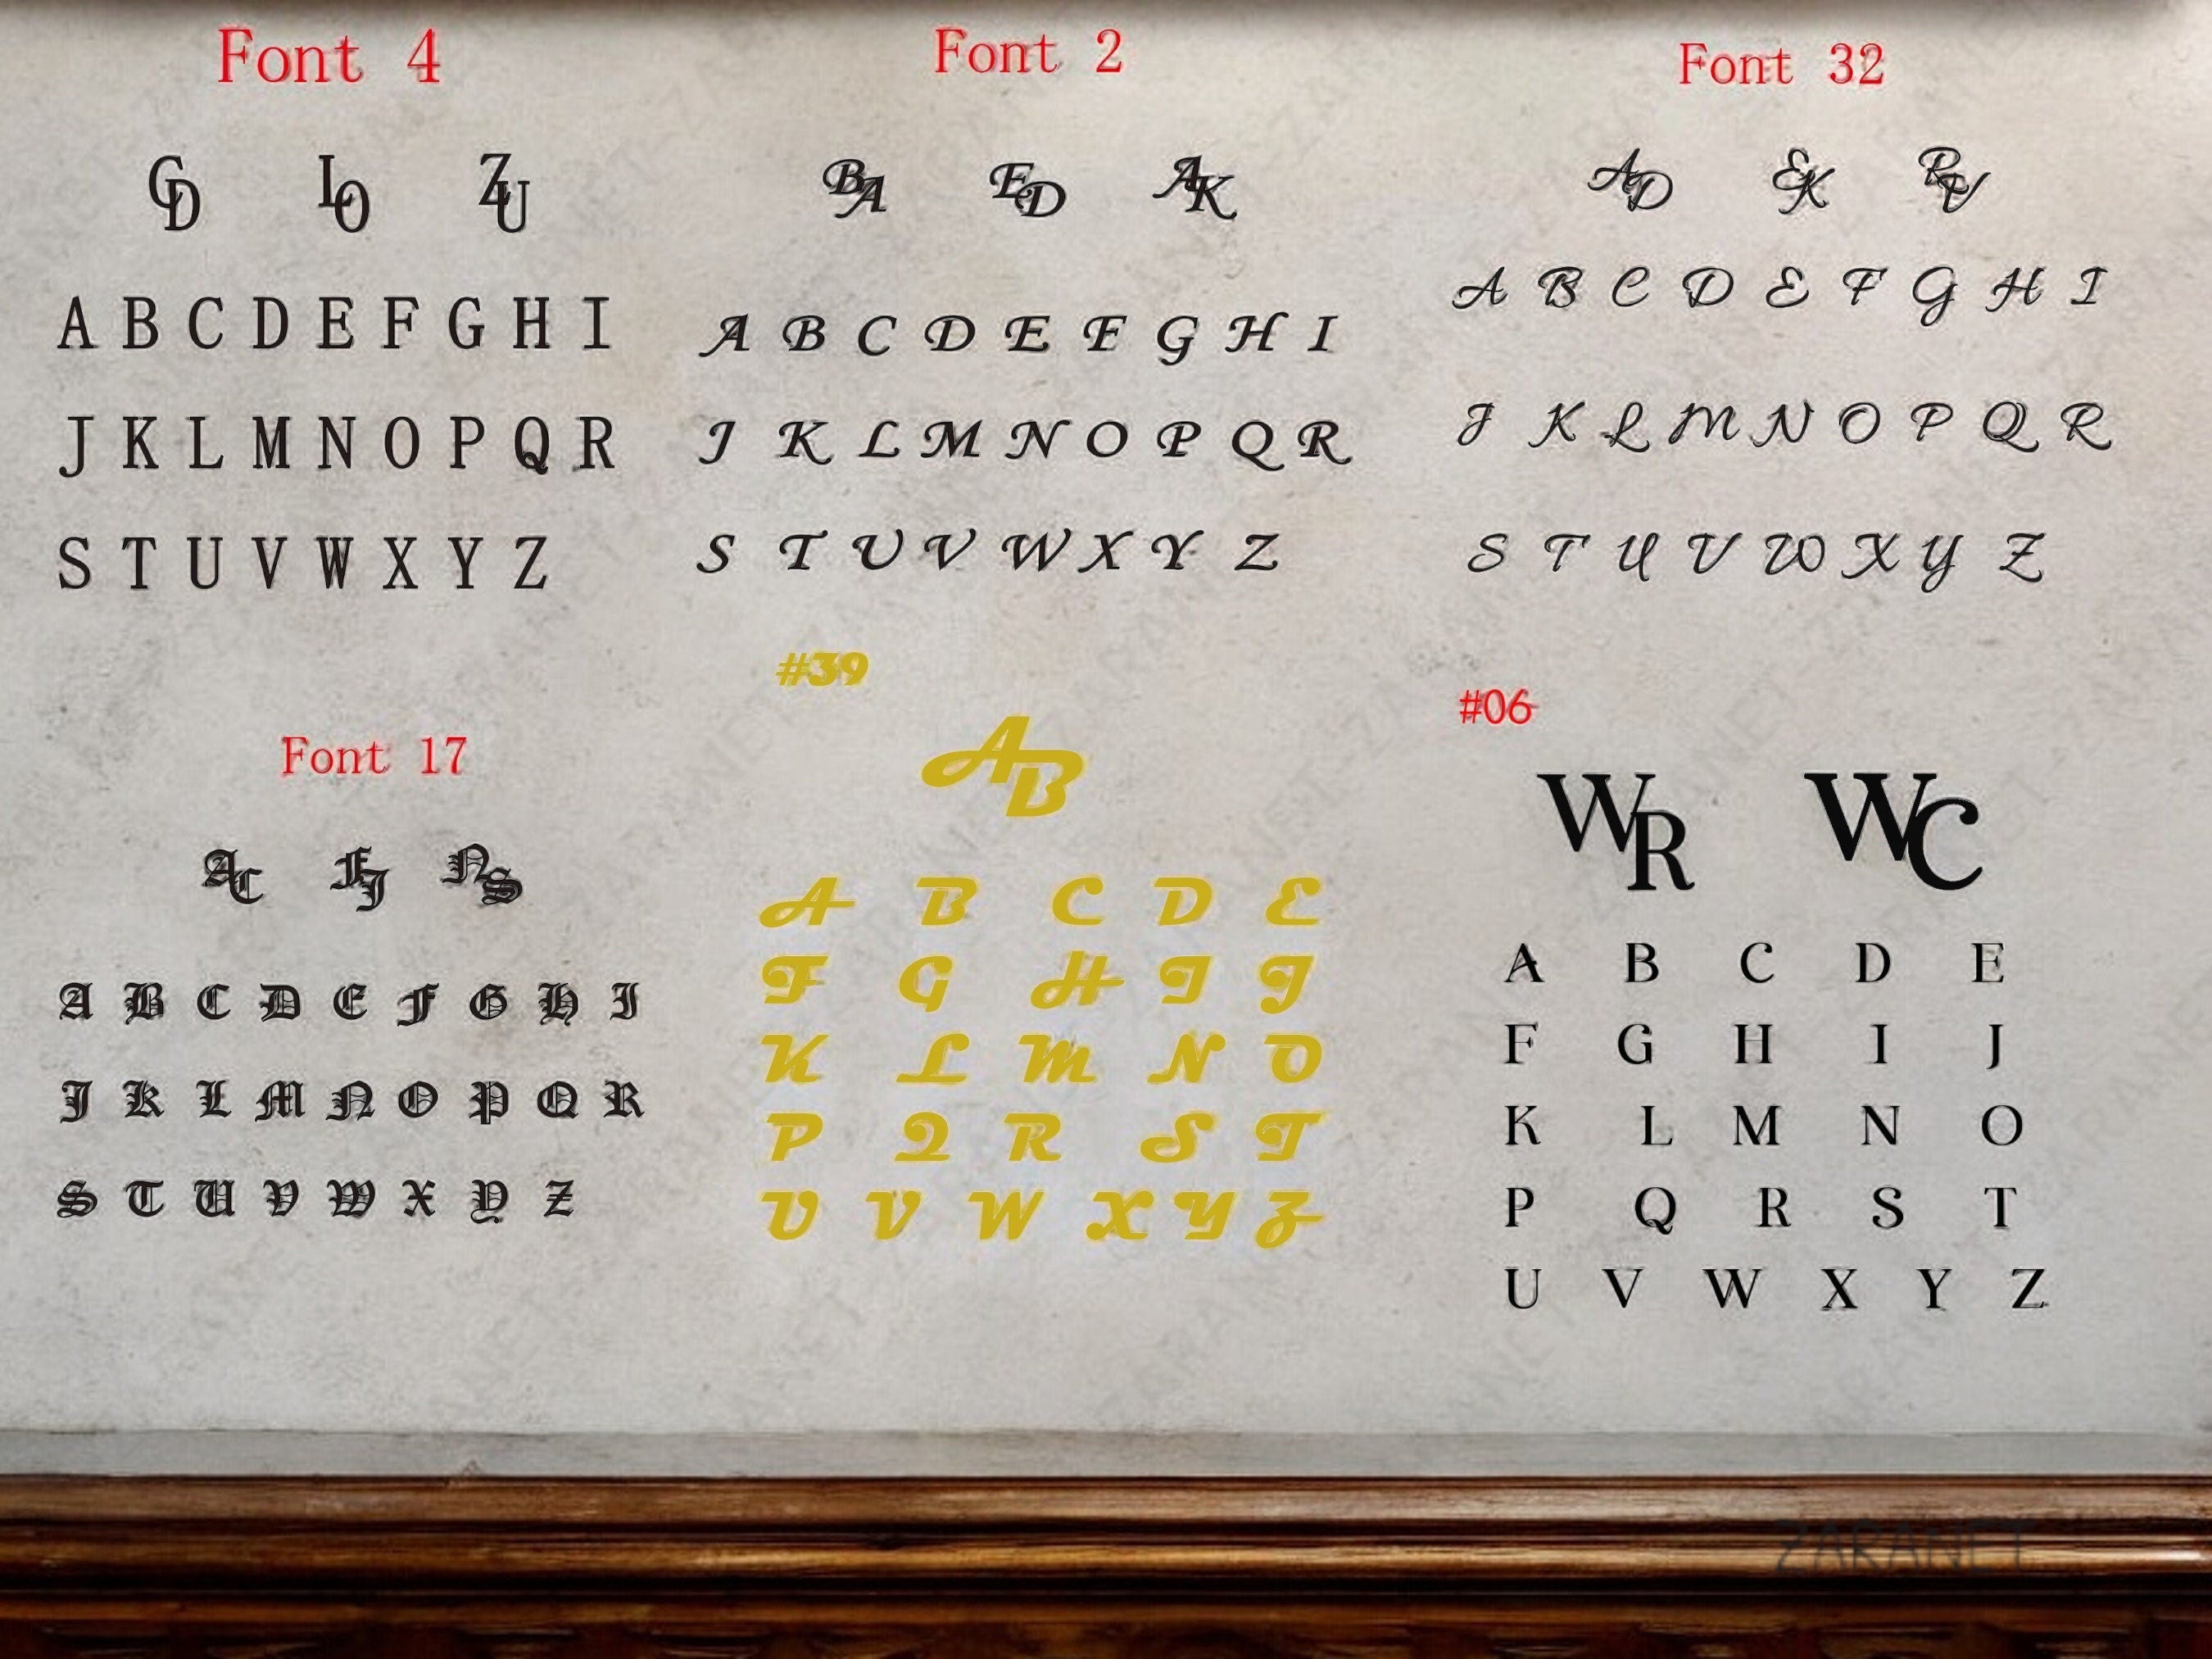 Font 4
CD LO ZU
A B C D E F G H I
J K L M N O P Q R
S T U V W X Y Z
Font 2
BA ED AK
A B C D E F G H I
J K L M N O P Q R
S T U V W X Y Z
Font 32
AD EK RV
A B C D E F G H I
J K L M N O P Q R
S T U V W X Y Z
Font 17
AC FJ NS
A B C D E F G H I
J K L M N O P Q R
S T U V W X Y Z
#39
AB
A B C D E
F G H I J
K L M N O
P Q R S T
U V W X Y Z
#06
WR WC
A B C D E
F G H I J
K L M N O
P Q R S T
U V W X Y Z
ZARANET